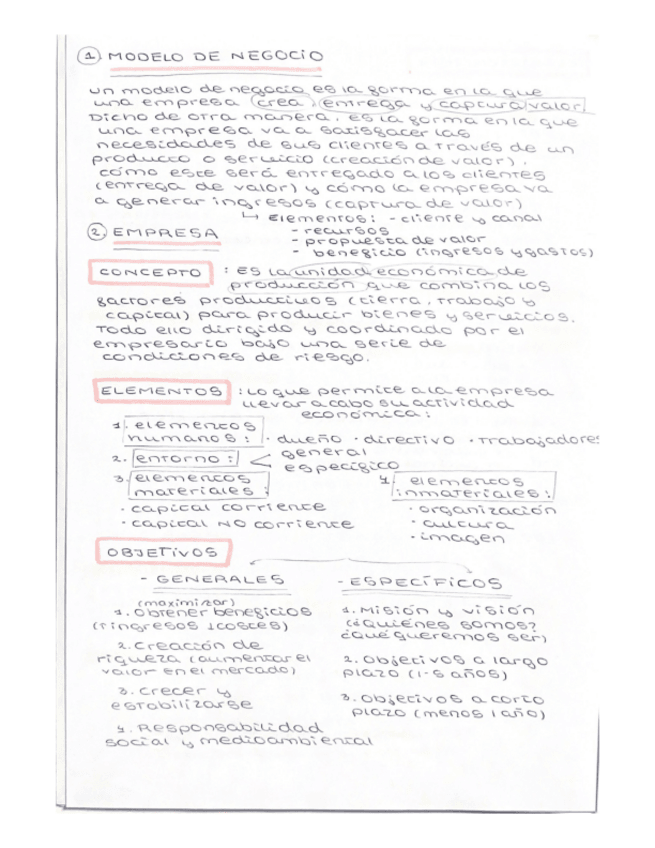 1. MODELO DE NEGOCIO
Un modelo de negocio es la forma en la que
una empresa crea, entrega y captura valor.
Dicho de otra manera, es la forma en la que
una empresa va a satisfacer las
necesidades de sus clientes a través de un
producto o servicio (creación de valor),
cómo este será entregado a los clientes
(entrega de valor) y cómo la empresa va
a generar ingresos (captura de valor)
↳ Elementos: - cliente y canal
- recursos
2. EMPRESA
- propuesta de valor
- beneficio (ingresos y gastos)
CONCEPTO : Es la unidad económica de
producción que combina los
factores productivos (tierra, trabajo y
capital) para producir bienes y servicios.
Todo ello dirigido y coordinado por el
empresario bajo una serie de
condiciones de riesgo.
ELEMENTOS : Lo que permite a la empresa
llevar a cabo su actividad
económica:
1. elementos
humanos: · dueño · directivo · trabajadores
2. entorno: < general
específico
3. elementos
materiales:
· capital corriente
· capital NO corriente
4. elementos
inmateriales:
· organización
· cultura
· imagen
OBJETIVOS
- GENERALES
(maximizar)
1. Obtener beneficios
(↑ingresos ↓costes)
2. Creación de
riqueza (aumentar el
valor en el mercado)
3. Crecer y
estabilizarse
4. Responsabilidad
social y medioambiental
- ESPECÍFICOS
1. Misión y visión
(¿Quiénes somos?
¿Qué queremos ser)
2. Objetivos a largo
plazo (1-5 años)
3. Objetivos a corto
plazo (menos 1 año)